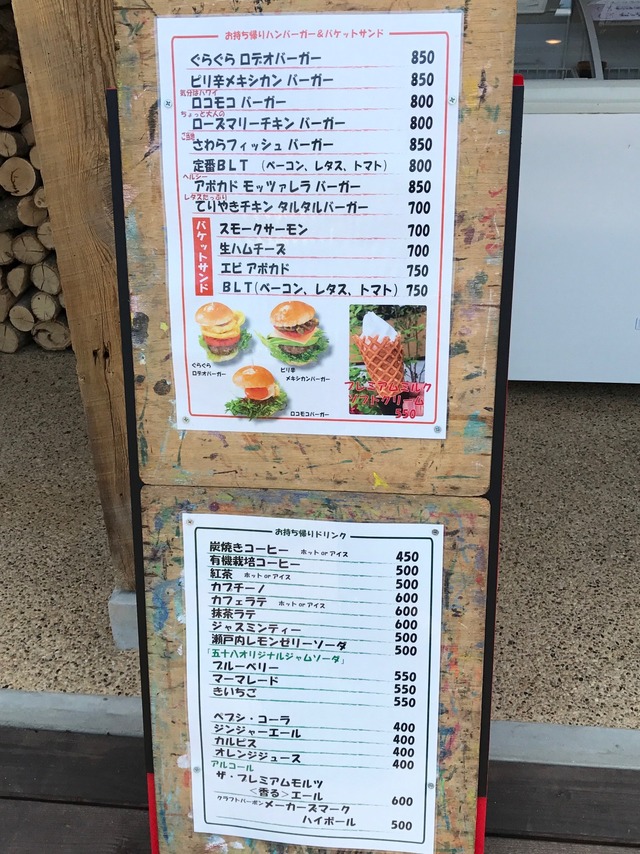 お持ち帰りハンバーガー&バケットサンド
ぐらぐら ロデオバーガー 850
ピリ辛メキシカン バーガー 850
気分はハワイ
ロコモコ バーガー 800
ちょっと大人の
ローズマリーチキン バーガー 800
ご当地
さわらフィッシュ バーガー 850
定番BLT (ベーコン、レタス、トマト) 800
ヘルシー
アボカド モッツァレラ バーガー 850
レタスたっぷり
てりやきチキン タルタルバーガー 700
バケットサンド
スモークサーモン 700
生ハムチーズ 700
エビ アボカド 750
BLT(ベーコン、レタス、トマト) 750
ぐらぐら
ロデオバーガー
ピリ辛
メキシカンバーガー
ロコモコバーガー
プレミアムミルク
ソフトクリーム
550
お持ち帰りドリンク
炭焼きコーヒー ホット or アイス 450
有機栽培コーヒー 500
紅茶 ホット or アイス 500
カプチーノ 600
カフェラテ ホット or アイス 600
抹茶ラテ 600
ジャスミンティー 500
瀬戸内レモンゼリーソーダ 500
「五十八オリジナルジャムソーダ」
ブルーベリー 550
マーマレード 550
きいちご 550
ペプシ・コーラ 400
ジンジャーエール 400
カルピス 400
オレンジジュース 400
アルコール
ザ・プレミアムモルツ
<香る>エール 600
クラフトバーボン メーカーズマーク
ハイボール 500